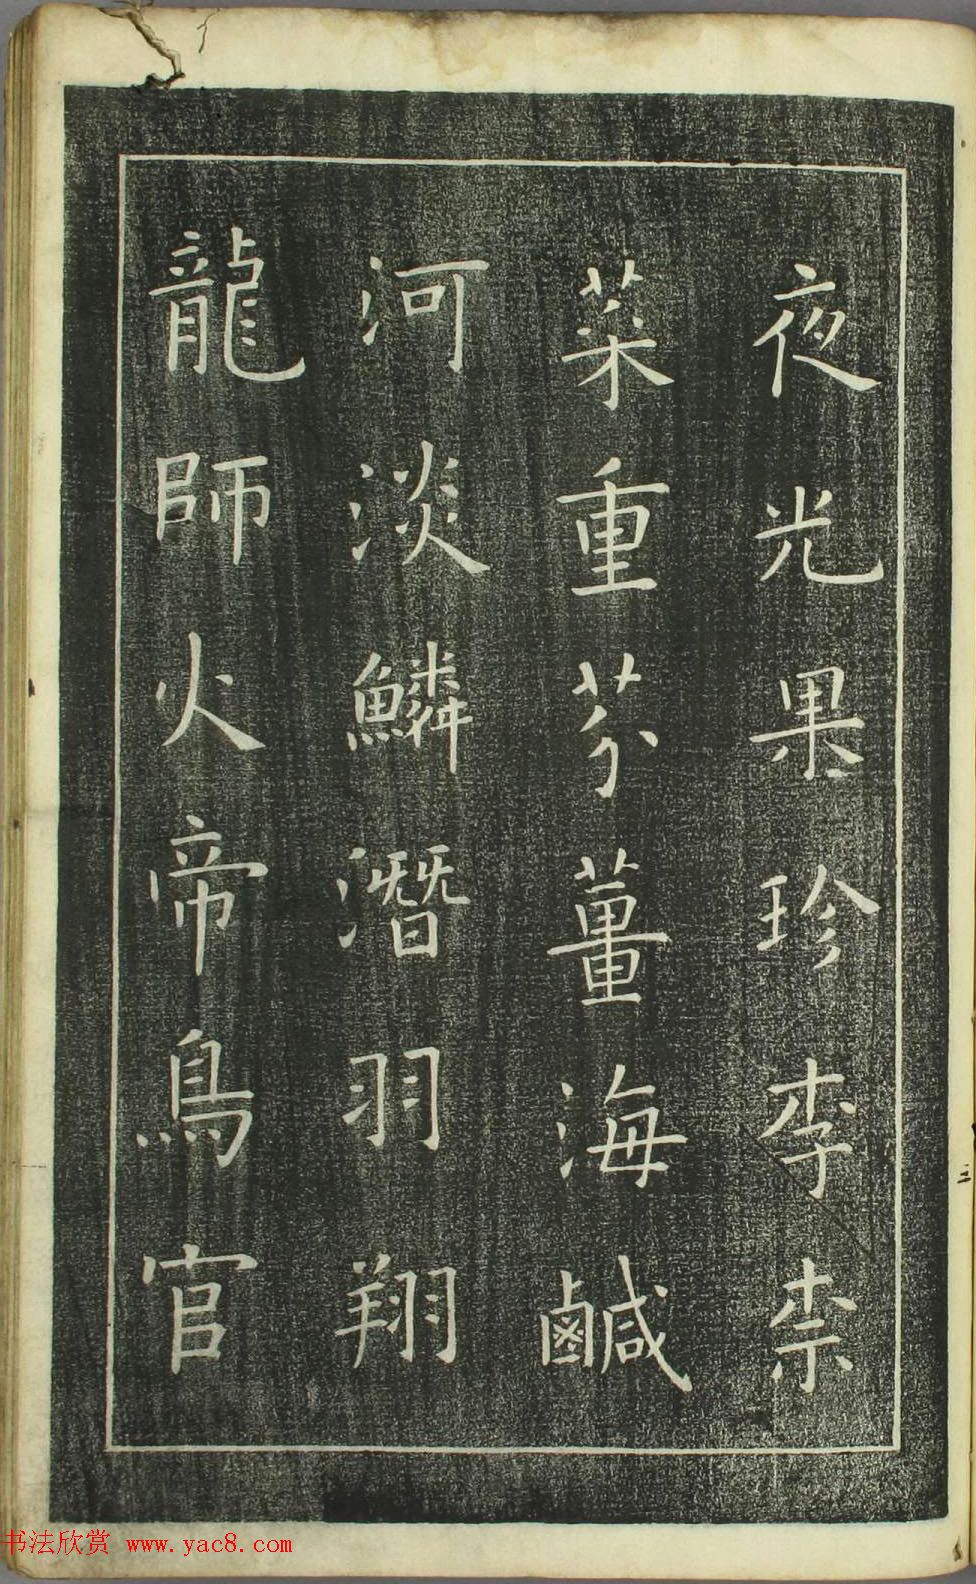 夜光果珍李柰
菜重芬薑海鹹
河淡鱗潛羽翔
龍師火帝鳥官
书法欣赏 www.yac8.com